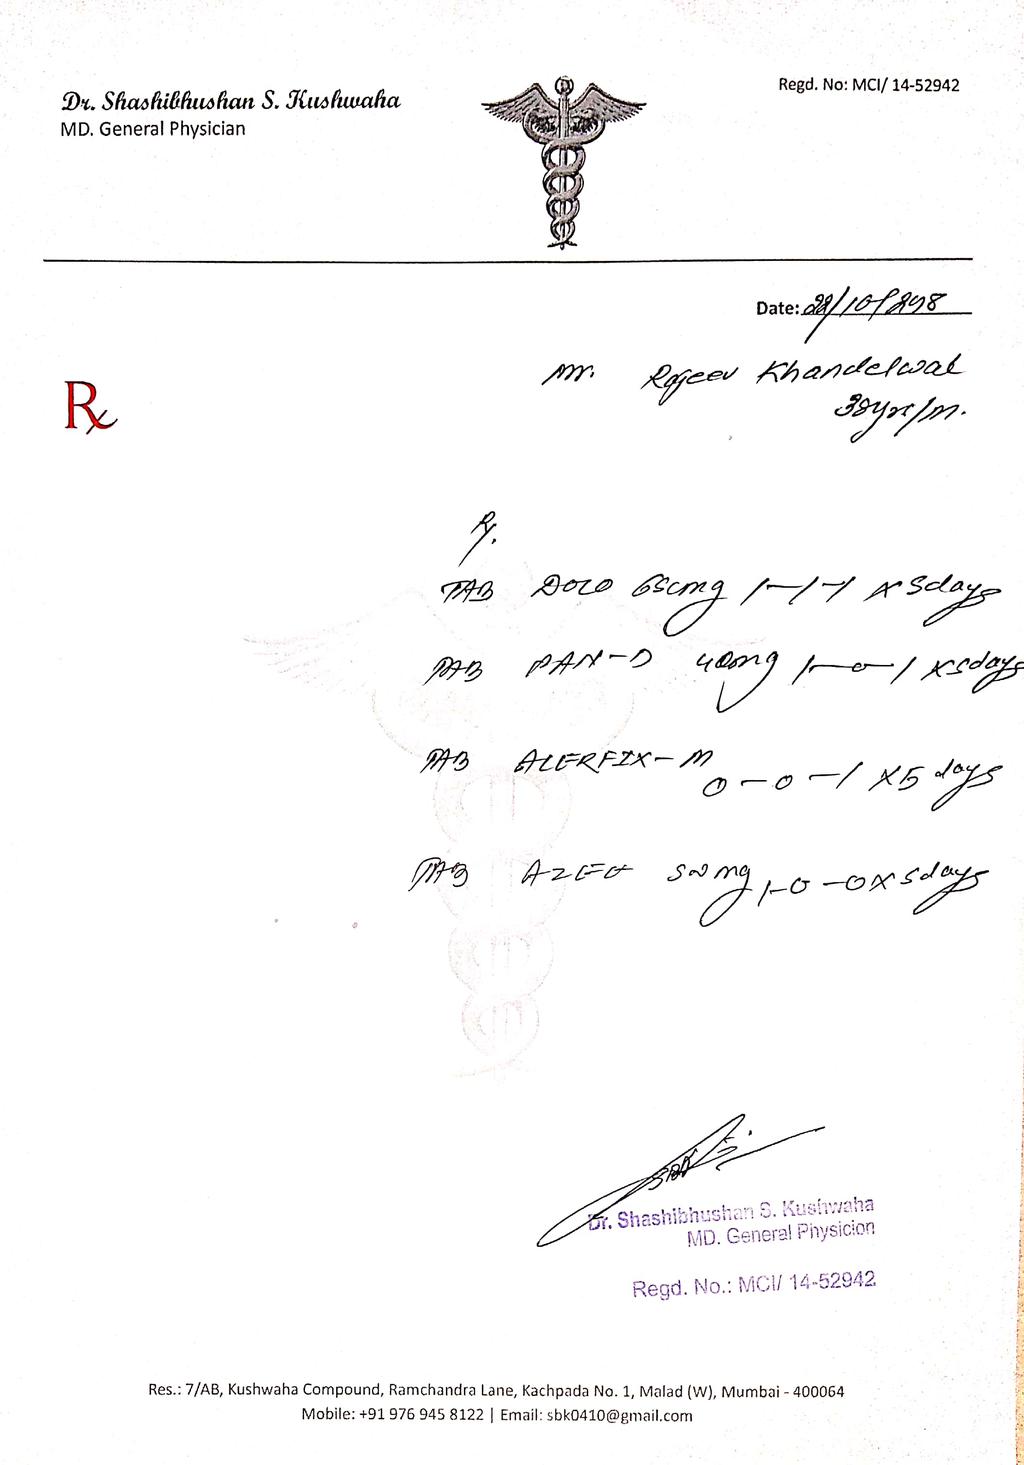 Dr. Shashibhushan S. Kushwaha
MD. General Physician
Regd. No: MCI/ 14-52942
Date: 22/10/2018
Mr. Rajeev Khandelwal
38yrs/m.
Rx
Rx.
TAB DOLO 650mg 1-1-1 x 5days
TAB PAN-D 40mg 1-0-1 x5days
TAB ALERFIX-M
0-0-1 x5 days
TAB AZEE 500mg 1-0-0x5days
Dr. Shashibhushan S. Kushwaha
MD. General Physician
Regd. No.: MCI/ 14-52942
Res.: 7/AB, Kushwaha Compound, Ramchandra Lane, Kachpada No. 1, Malad (W), Mumbai - 400064
Mobile: +91 976 945 8122 | Email: sbk0410@gmail.com